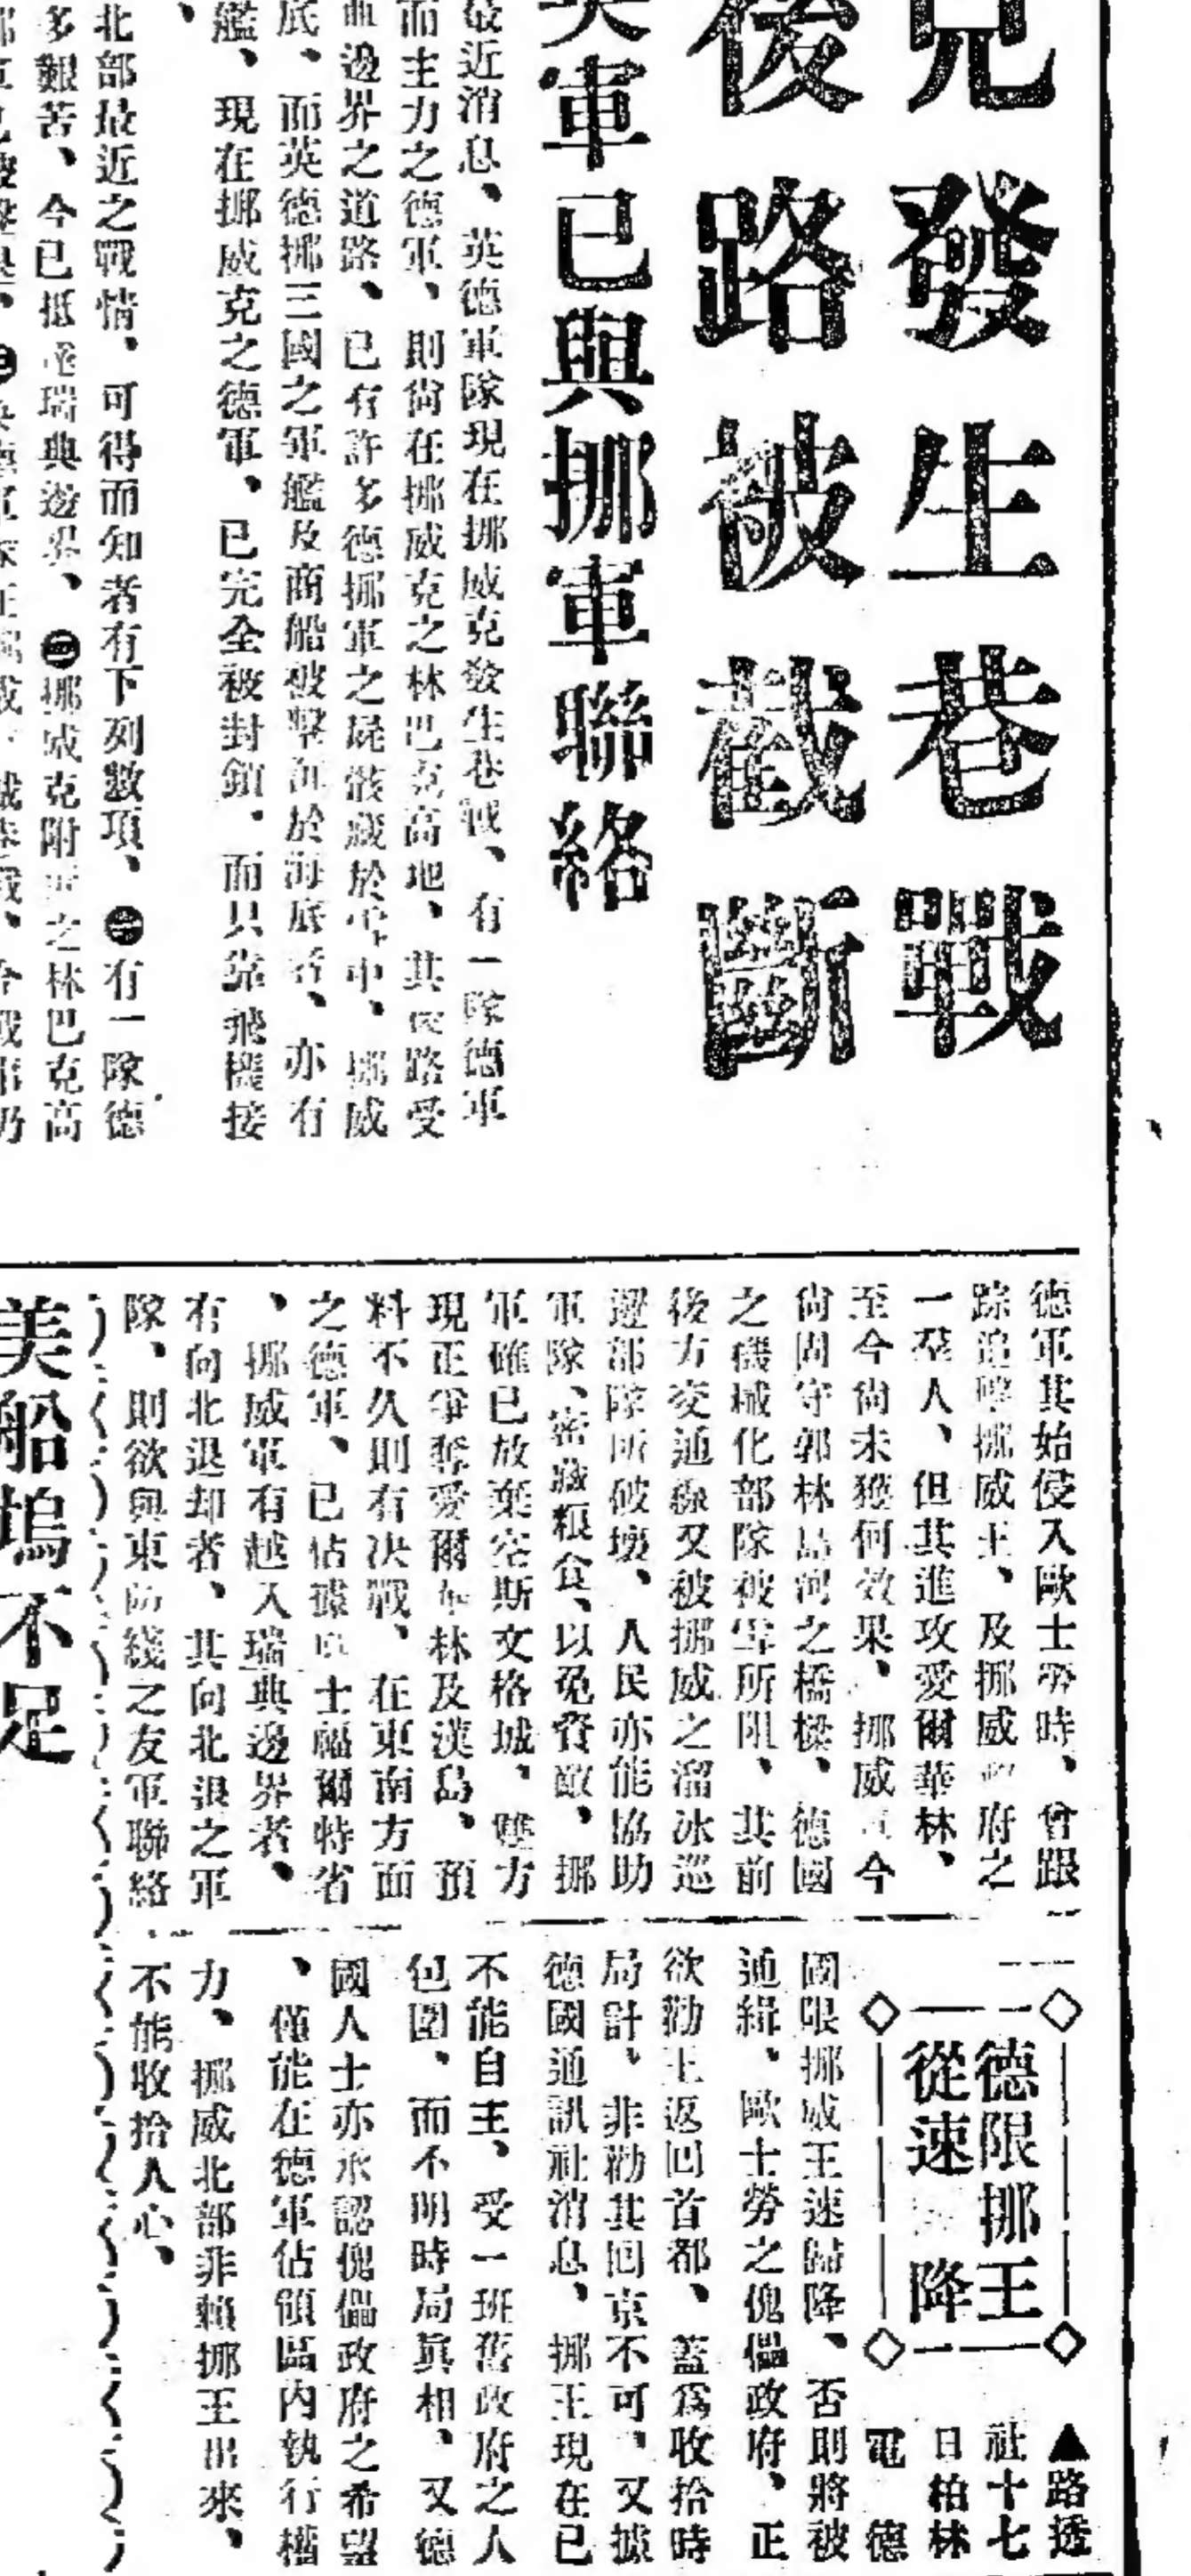 兄發生巷戰
後路被截斷
英軍已與挪軍聯絡
最近消息、英德軍隊現在挪威克發生巷戰、有一隊德軍
而主力之德軍、則尙在挪威克之林巴克高地、其後路受
邊界之道路、已有許多德挪軍之屍骸藏於雪中、挪威
底、而英德挪三國之軍艦及商船被擊沉於海底者、亦有
艦、現在挪威克之德軍、已完全被封鎖、而只靠飛機接
、
北部最近之戰情、可得而知者有下列數項、㊀有一隊德
多艱苦、今已抵達瑞典邊界、㊁挪威克附近之林巴克高
德軍其始侵入歐士勞時、曾跟
踪追擊挪威王、及挪威政府之
一羣人、但其進攻愛爾華林、
至今尙未獲何效果、挪威 今
尙固守郭林島河之橋樑、德國
之磯械化部隊被雪所阻、其前
後方交通線又被挪威之溜冰巡
邏部隊所破壞、人民亦能協助
軍隊、密藏粮食、以免資敵、挪
軍確已放棄空斯文格城、雙方
現正爭奪愛爾 林及漢島、預
料不久則有决戰、在東南方面
之德軍、已佔據 士福爾特省
、挪威軍有越入瑞典邊界者、
有向北退却者、其向北退之軍
隊、則欲與東防綫之友軍聯絡
德限挪王
從速 降
▲路透
社十七
日柏林
電 德
國限挪威王速歸降、否則將被
通緝、歐士勞之傀儡政府、正
欲勸王返回首都、蓋爲收拾時
局計、非勸其回京不可、又據
德國通訊社消息、挪王現在已
不能自主、受一班舊政府之人
包圍、而不明時局眞相、又德
國人士亦承認傀儡政府之希望
、僅能在德軍佔領區內執行權
力、挪威北部非賴挪王出來、
不能收拾人心、
美船塢不足